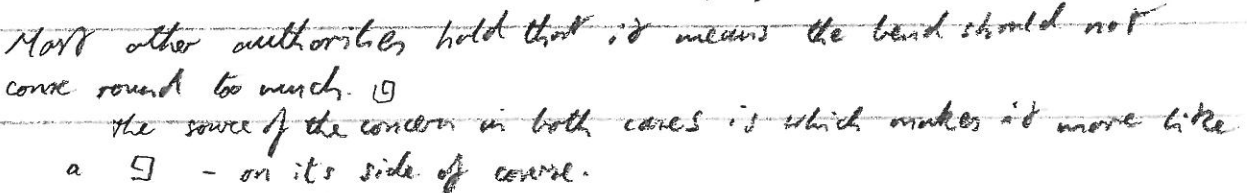 Most other authorities hold that it means the bend should not
come round too much.
The source of the concern in both cases is which makes it more like
a - on it's side of course.